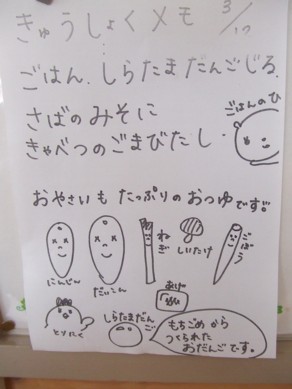 きゅうしょくメモ 3/17
ごはん、しらたまだんごじる、
さばのみそに
きゃべつのごまびたし
ごはんのひ
おやさいもたっぷりのおつゆです!!
にんじん
だいこん
ねぎ
しいたけ
ごぼう
あげ
とりにく
しらたまだんご
もちごめから
つくられた
おだんごです。